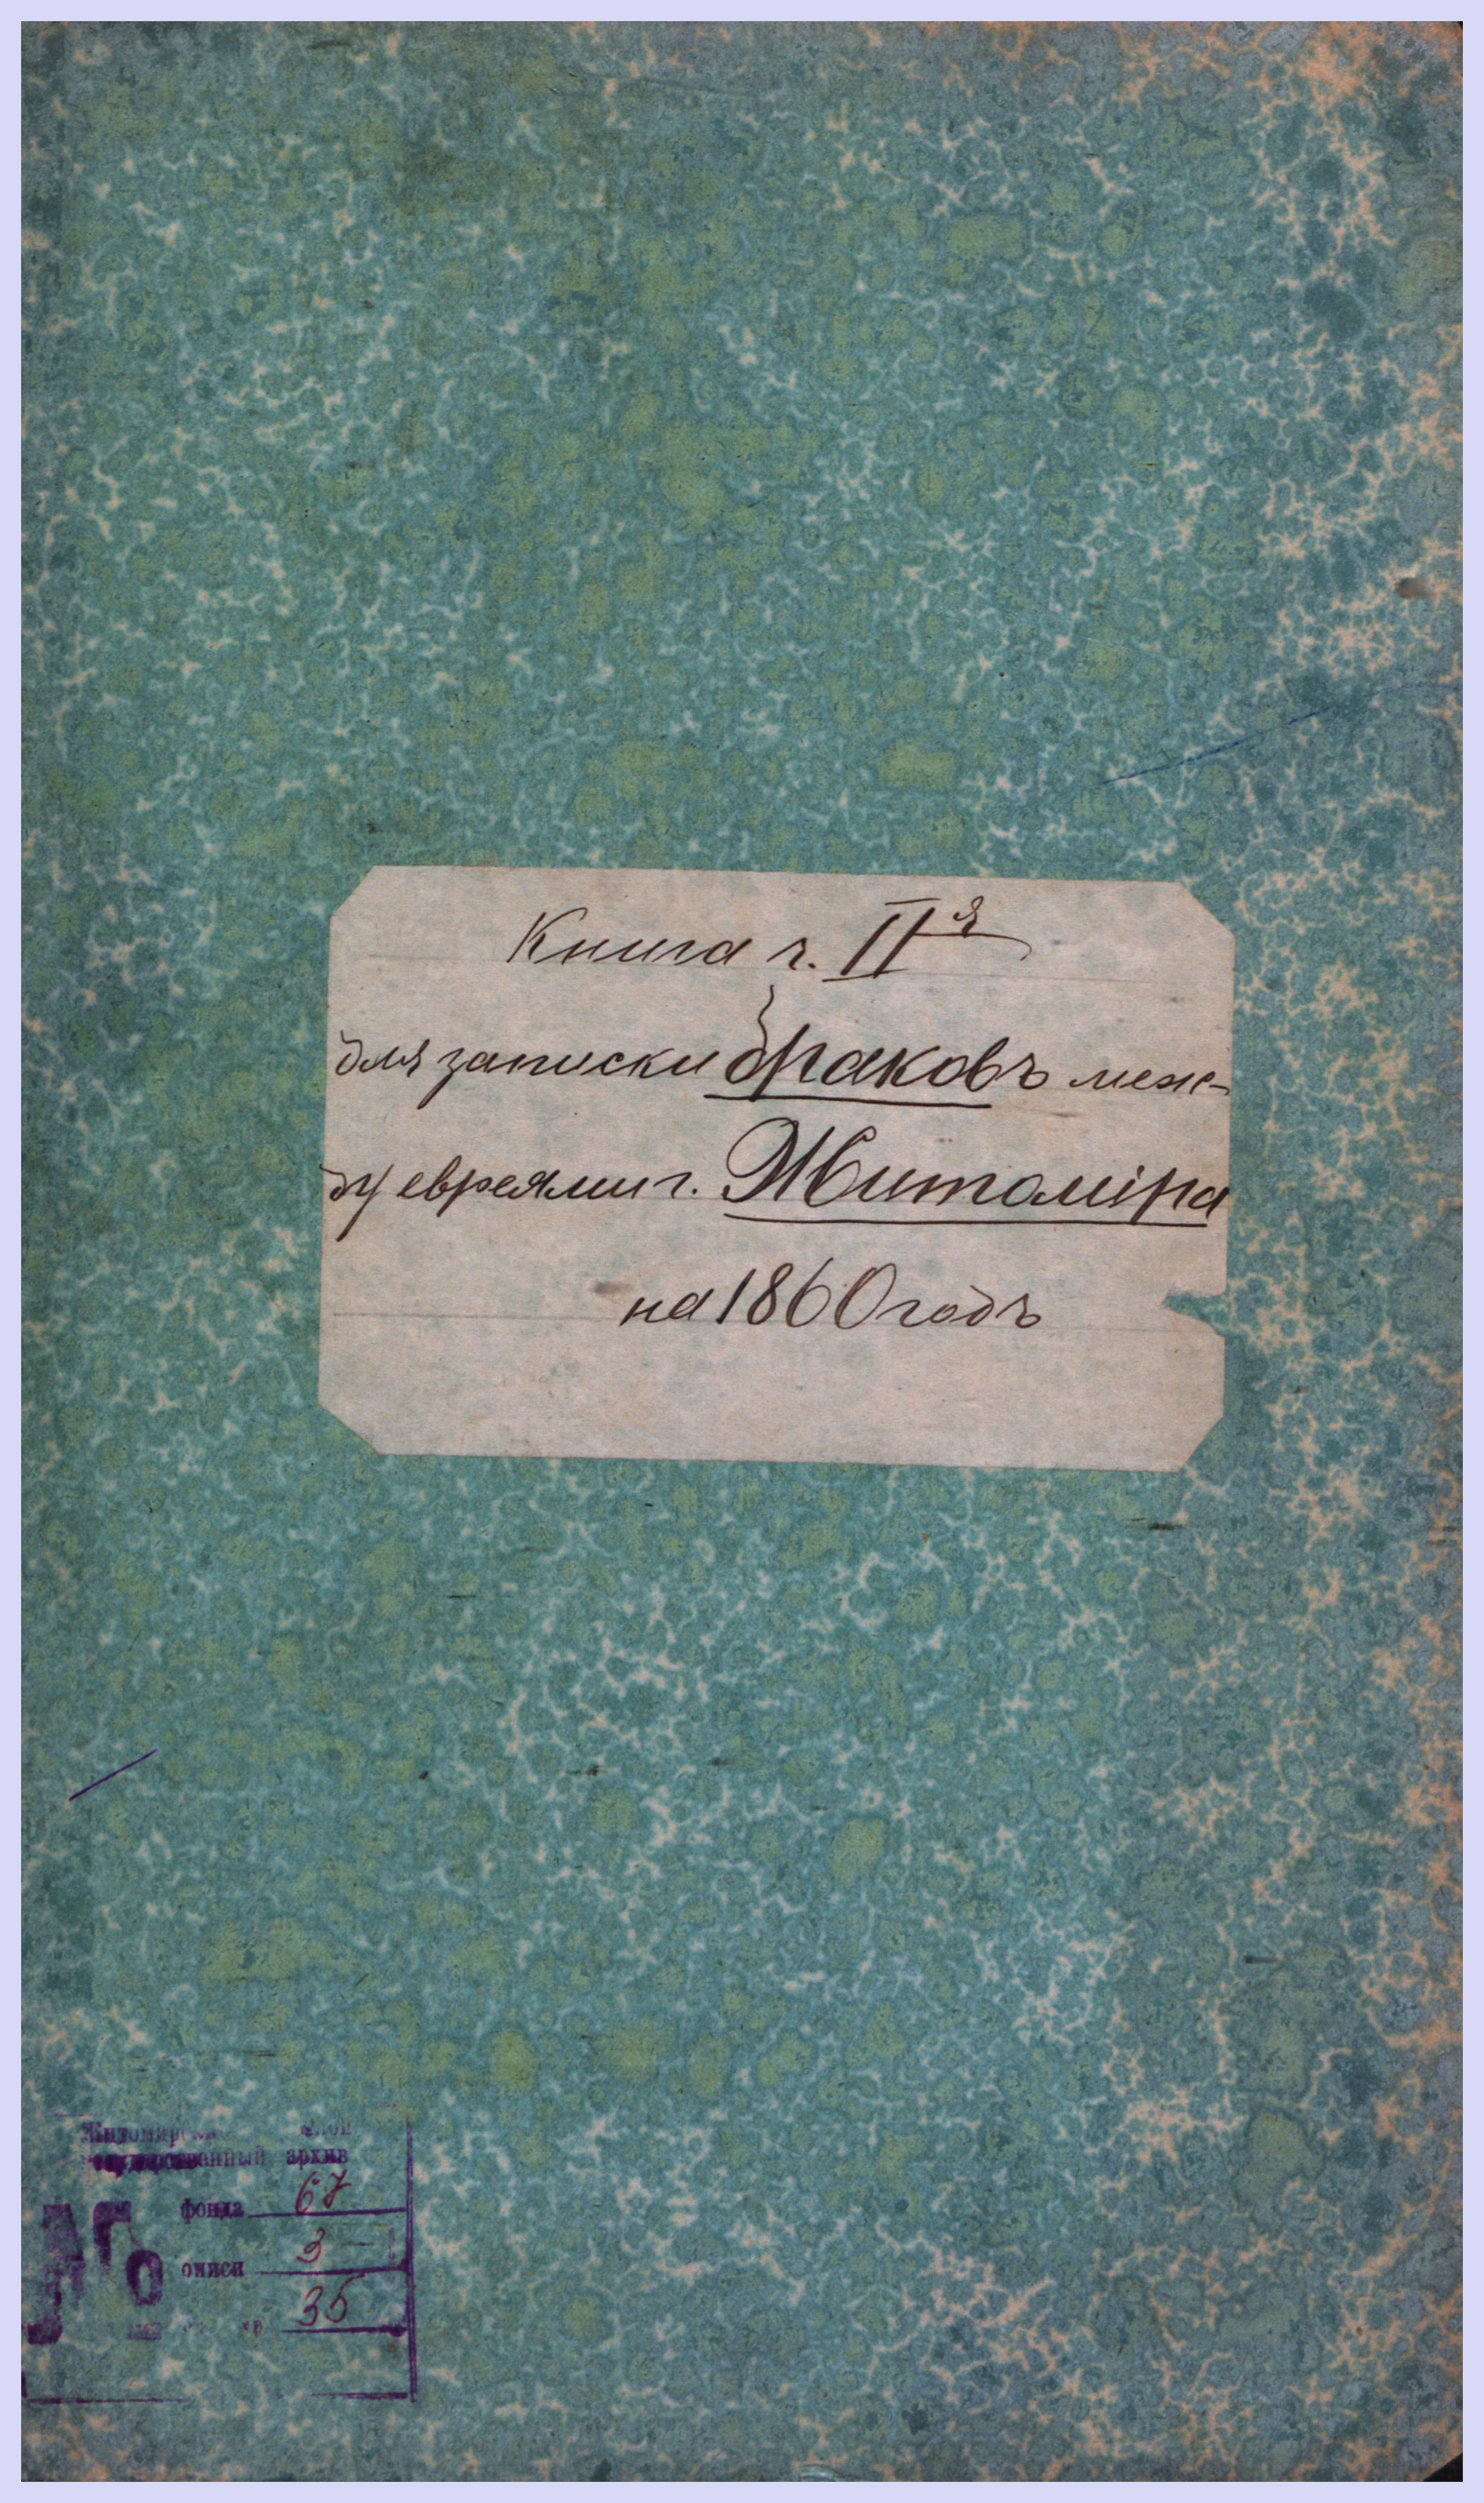 Книга ч. IIя
для записки браковъ меж-
ду евреями г. Житоміра
на 1860 годъ
архив
фонда 67
описи 3
35